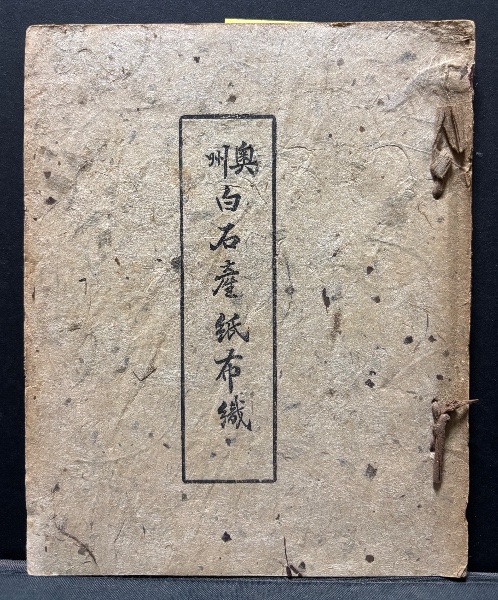 奥州白石産紙布織